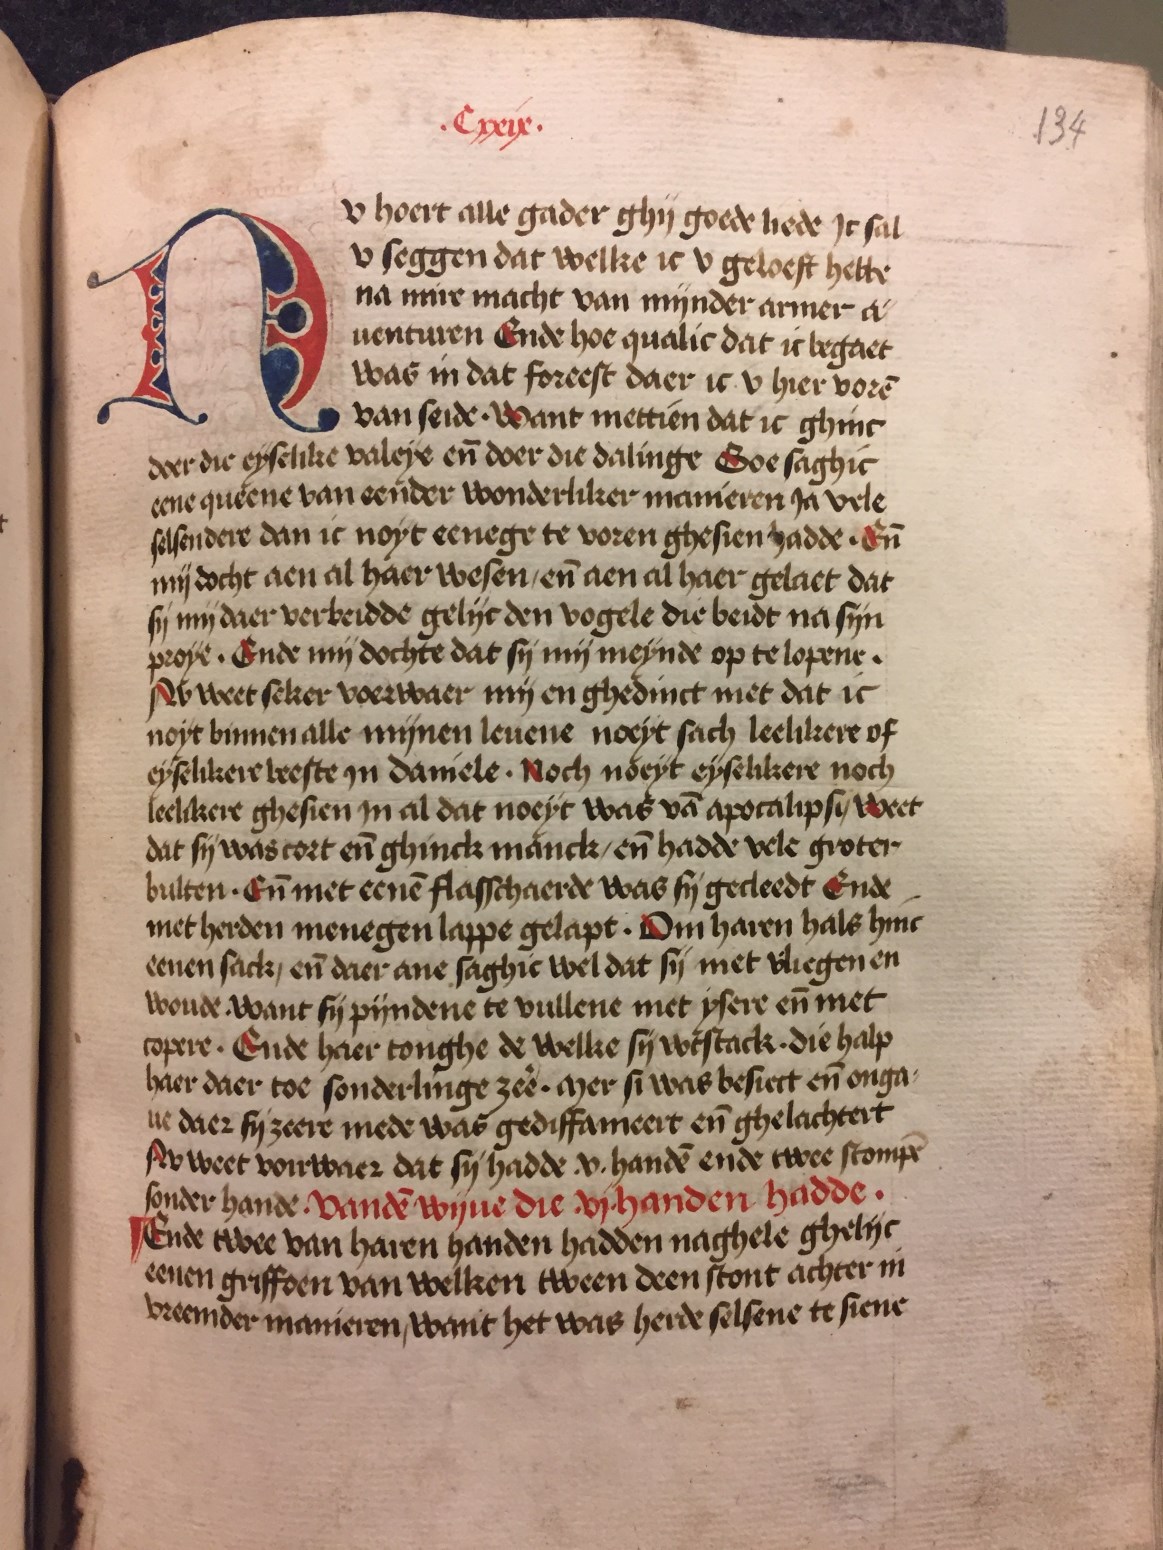 .Cxxix.
134
Nv hoert alle gader ghij goede liede Ic sal
v seggen dat welke ic v geloeft hebbe
na mire macht van mijnder armer a
uenturen Ende hoe qualic dat ic begaet
was in dat foreest daer ic v hier vorē
van seide. Want mettien dat ic ghinc
doer die eyselike valeye eñ doer die dalinge Soe saghic
eene queene van eender wonderliker manieren Ja vele
selsendere dan ic noyt eenege te voren ghesien hadde. Eñ
mij docht aen al haer wesen/ eñ aen al haer gelaet dat
sij mij daer verbeidde gelijc den vogele die beidt na sijn
proye. Ende mij dochte dat sij mij meynde op te lopene.
Nv weet seker voerwaer mij en ghedinct niet dat ic
noyt binnen alle mijnen leuene noeyt sach leelikere of
eyselikere beeste in daniele. Noch noeyt eyselikere noch
leelikere ghesien In al dat noeyt was vā apocalipsij weet
dat sij was cort eñ ghinck manck/ eñ hadde vele groter
bulten. Eñ met eenē flasschaerde was sij gecleedt Ende
met herden menegen lappe gelapt. Om haren hals hinc
eenen sack/ eñ daer ane saghic wel dat sij niet vliegen en
woude. Want sij pijndene te vullene met ysere eñ met
copere. Ende haer tonghe de welke sij wtstack. die halp
haer daer toe sonderlinge zeē. Mer si was besiect eñ onga-
ue daer sij zeere mede was gediffameert eñ ghelachtert
Nv weet voirwaer dat sij hadde .v. handē ende twee stompē
sonder hande. Vandē wijue die .vj. handen hadde.
Ende twee van haren handen hadden naghele ghelijc
eenen griffoen van welken tween deen stont achter in
vreemder manieren/ want het was herde selsene te siene